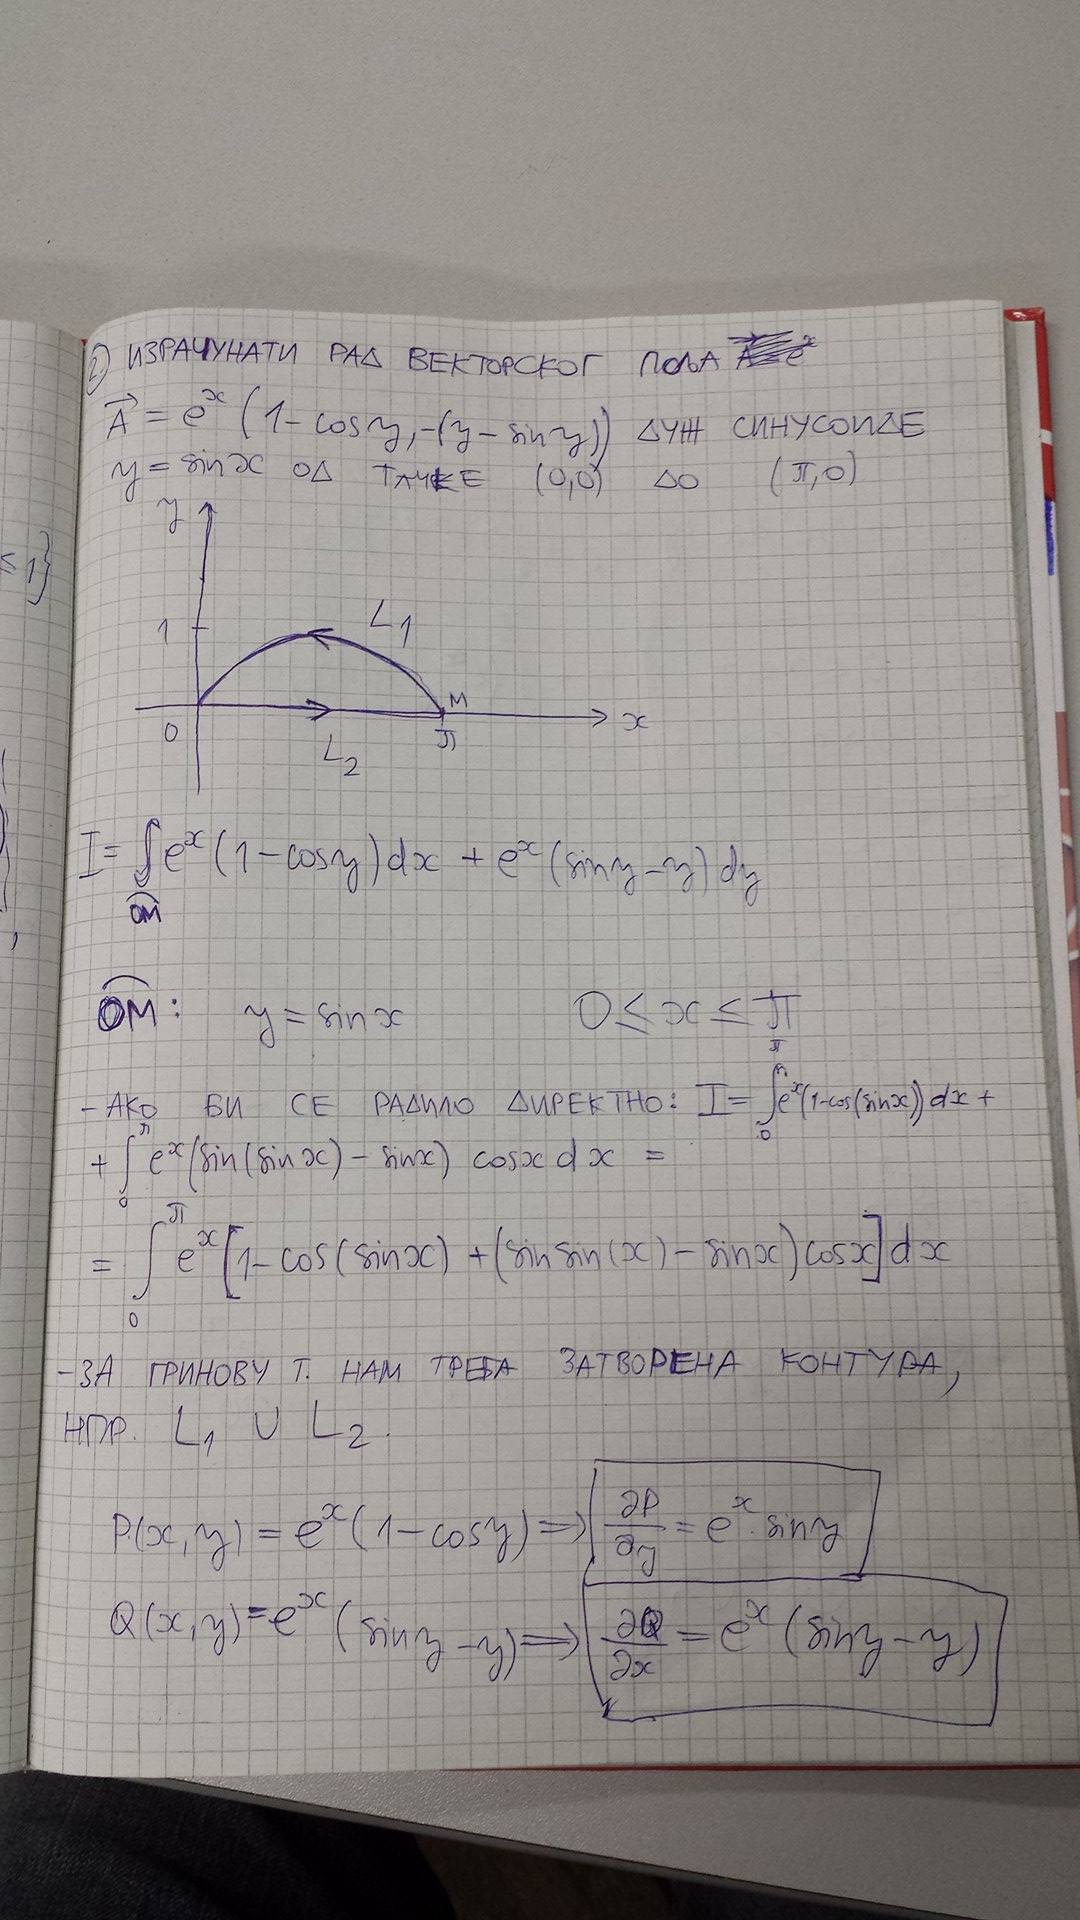 2) ИЗРАЧУНАТИ РАД ВЕКТОРСКОГ ПОЉА
A⃗ = e^x (1 - cos y, -(y - sin y)) ДУЖ СИНУСОИДЕ
y = sin x ОД ТАЧКЕ (0,0) ДО (π,0)
≤ 1}
y
1
L₁
M
0
π
x
L₂
I = ∫_{OM} e^x (1 - cos y) dx + e^x (sin y - y) dy
OM: y = sin x 0 ≤ x ≤ π
- АКО БИ СЕ РАДИЛО ДИРЕКТНО: I = ∫₀^π e^x (1 - cos(sin x)) dx +
+ ∫₀^π e^x (sin(sin x) - sin x) cos x dx =
= ∫₀^π e^x [1 - cos(sin x) + (sin sin(x) - sin x) cos x] dx
- ЗА ГРИНОВУ Т. НАМ ТРЕБА ЗАТВОРЕНА КОНТУРА,
НПР. L₁ ∪ L₂.
P(x, y) = e^x (1 - cos y) ⟹ ∂P/∂y = e^x · sin y
Q(x, y) = e^x (sin y - y) ⟹ ∂Q/∂x = e^x (sin y - y)